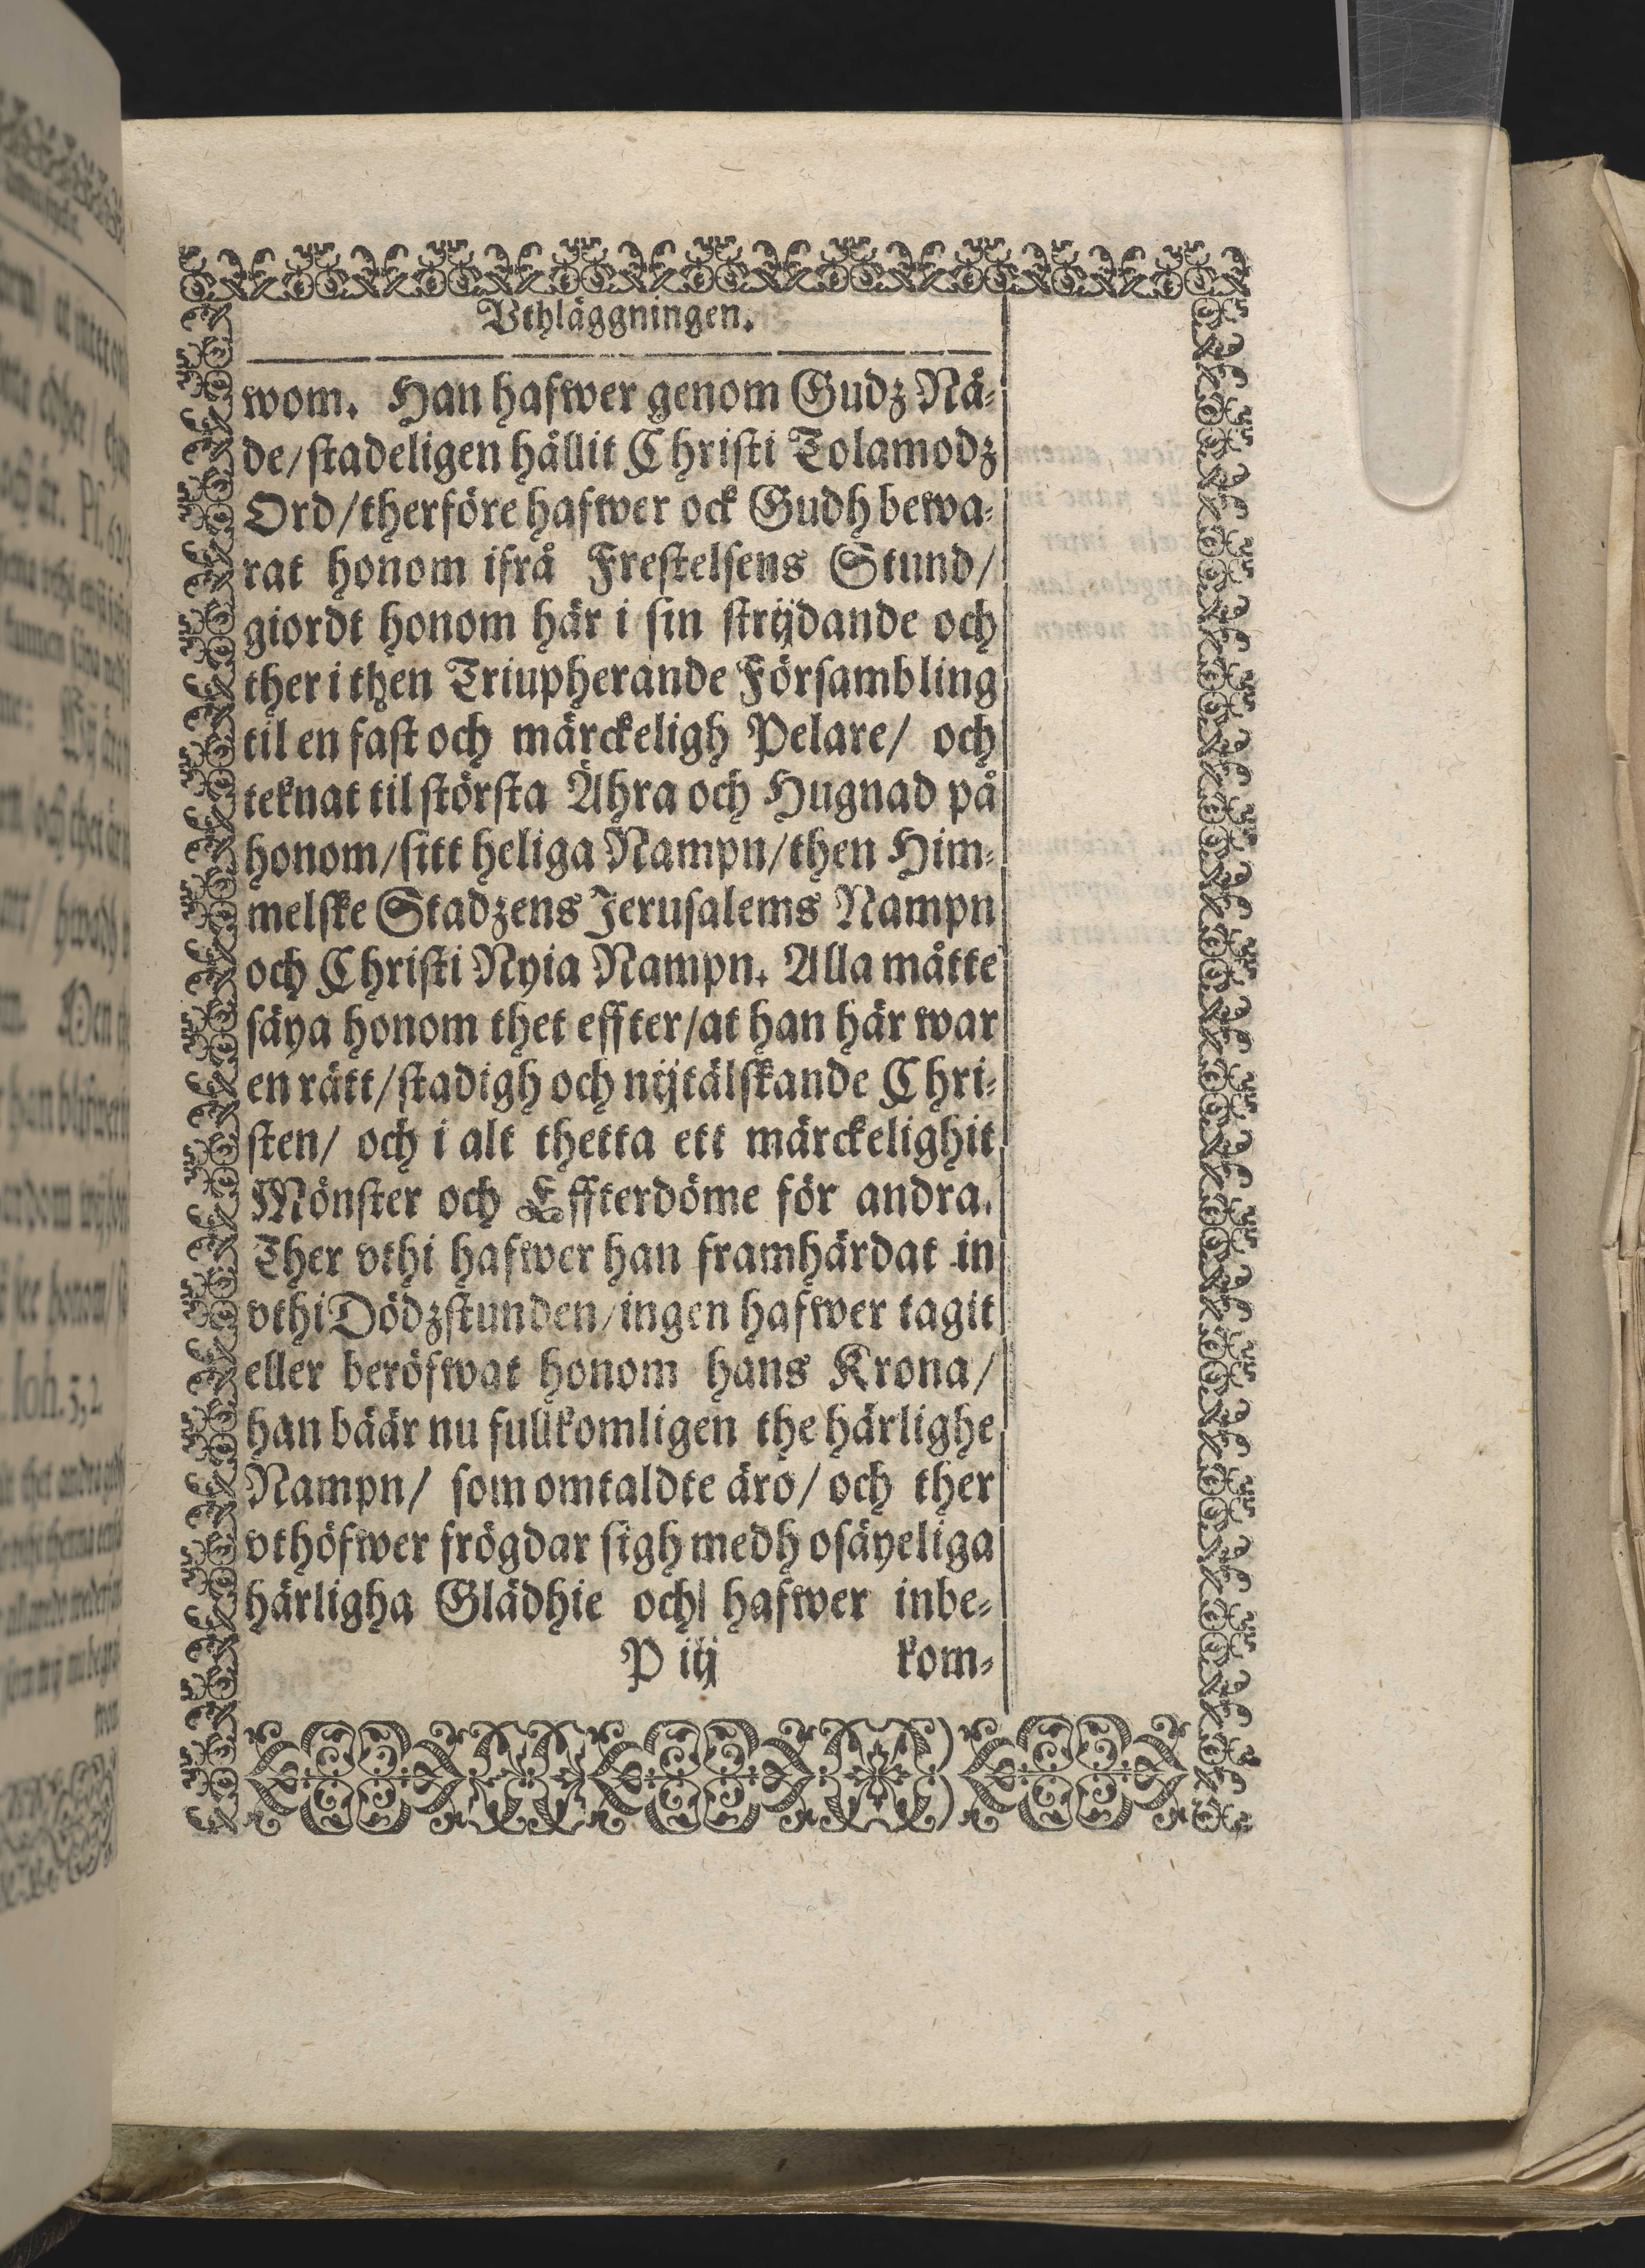 Vthläggningen.
wom. Han hafwer genom Gudz Nä-
de/stadeligen hållit Christi Tolamodz
Ord/therföre hafwer ock Gudh bewa-
rat honom ifrå Frestelsens Stund/
giordt honom här i sin strijdande och
ther i then Triupherande Försambling
til en fast och märckeligh Pelare/ och
teknat til största Ähra och Hugnad på
honom/sitt heliga Nampn/then Him-
melske Stadzens Jerusalems Nampn
och Christi Nyia Nampn. Alla måtte
säya honom thet effter/at han här war
en rätt/stadigh och nijtälskande Chri-
sten/ och i alt thetta ett märckelighit
Mönster och Effterdöme för andra.
Ther vthi hafwer han framhärdat in
vthi Dödzstunden/ingen hafwer tagit
eller beröfwat honom hans Krona/
han bäär nu fullkomligen the härlighe
Nampn/ som omtaldte äro/ och ther
vthöfwer frögdar sigh medh osäyeliga
härligha Glädhie och hafwer inbe-
P iij kom-